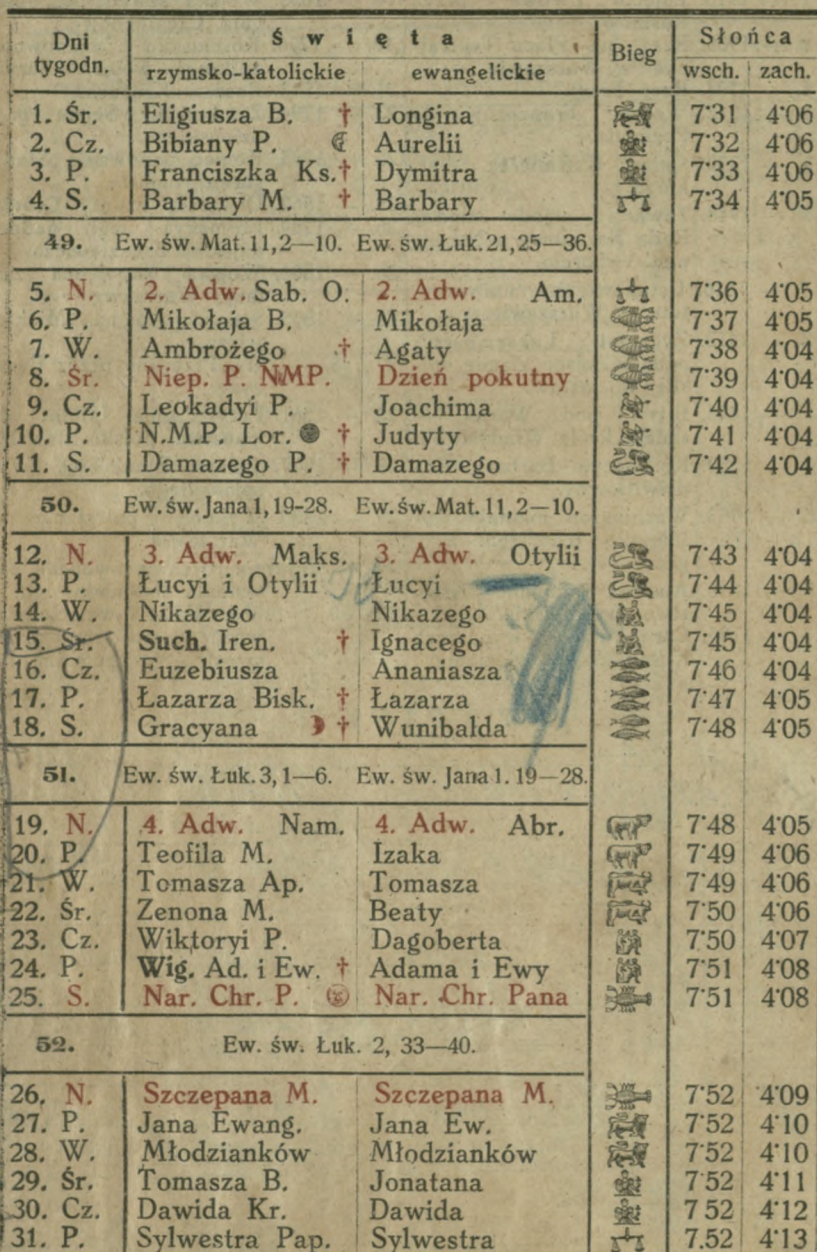 Dni tygodn. Święta Bieg Słońca
rzymsko-katolickie ewangelickie wsch. zach.
1. Śr. Eligiusza B. † Longina 7·31 4·06
2. Cz. Bibiany P. ☾ Aurelii 7·32 4·06
3. P. Franciszka Ks. † Dymitra 7·33 4·06
4. S. Barbary M. † Barbary 7·34 4·05
49. Ew. św. Mat. 11, 2—10. Ew. św. Łuk. 21, 25—36.
5. N. 2. Adw. Sab. O. 2. Adw. Am. 7·36 4·05
6. P. Mikołaja B. Mikołaja 7·37 4·05
7. W. Ambrożego † Agaty 7·38 4·04
8. Śr. Niep. P. NMP. Dzień pokutny 7·39 4·04
9. Cz. Leokadyi P. Joachima 7·40 4·04
10. P. N.M.P. Lor. ● † Judyty 7·41 4·04
11. S. Damazego P. † Damazego 7·42 4·04
50. Ew. św. Jana 1, 19-28. Ew. św. Mat. 11, 2—10.
12. N. 3. Adw. Maks. 3. Adw. Otylii 7·43 4·04
13. P. Łucyi i Otylii Łucyi 7·44 4·04
14. W. Nikazego Nikazego 7·45 4·04
15. Śr. Such. Iren. † Ignacego 7·45 4·04
16. Cz. Euzebiusza Ananiasza 7·46 4·04
17. P. Łazarza Bisk. † Łazarza 7·47 4·05
18. S. Gracyana ☽ † Wunibalda 7·48 4·05
51. Ew. św. Łuk. 3, 1—6. Ew. św. Jana 1. 19—28.
19. N. 4. Adw. Nam. 4. Adw. Abr. 7·48 4·05
20. P. Teofila M. Izaka 7·49 4·06
21. W. Tomasza Ap. Tomasza 7·49 4·06
22. Śr. Zenona M. Beaty 7·50 4·06
23. Cz. Wiktoryi P. Dagoberta 7·50 4·07
24. P. Wig. Ad. i Ew. † Adama i Ewy 7·51 4·08
25. S. Nar. Chr. P. Nar. Chr. Pana 7·51 4·08
52. Ew. św. Łuk. 2, 33—40.
26. N. Szczepana M. Szczepana M. 7·52 4·09
27. P. Jana Ewang. Jana Ew. 7·52 4·10
28. W. Młodzianków Młodzianków 7·52 4·10
29. Śr. Tomasza B. Jonatana 7·52 4·11
30. Cz. Dawida Kr. Dawida 7 52 4·12
31. P. Sylwestra Pap. Sylwestra 7.52 4·13